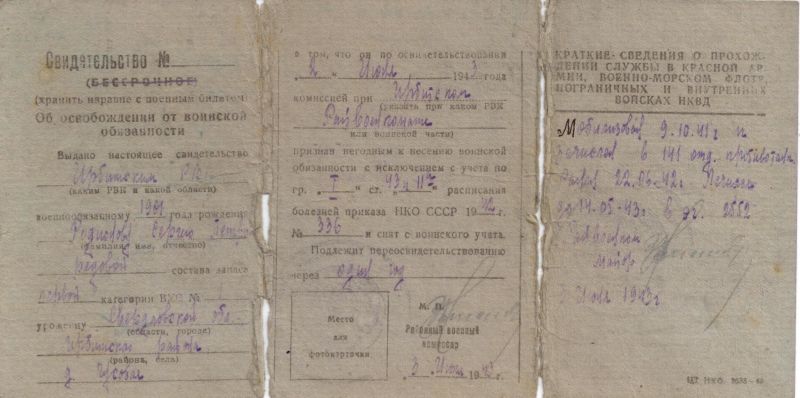 Свидетельство №
(БЕССРОЧНОЕ)
(хранить наравне с военным билетом)
Об освобождении от воинской
обязанности
Выдано настоящее свидетельство
Ирбитским РВК
(каким РВК и какой области)
военнообязанному 1901 года рождения
Сергею
(фамилия, имя, отчество)
рядовой состава запаса
первой категории ВУС № 1
уроженцу Свердловской обл.
(области, города)
Ирбитского района
(района, села)
д.
в том, что он по освидетельствовании
2 " Июля 1943 года
комиссией при Ирбитском
(указать при каком РВК
Райвоенкомате
или воинской части)
признан негодным к несению воинской
обязанности с исключением с учета по
гр. " I " ст. расписания
болезней приказа НКО СССР 1942 г.
№ 336 и снят с воинского учета.
Подлежит переосвидетельствованию
через один год
Место
для
фотокарточки
М. П.
Районный военный
комиссар
3 Июля 1943 г
КРАТКИЕ СВЕДЕНИЯ О ПРОХОЖ-
ДЕНИИ СЛУЖБЫ В КРАСНОЙ АР-
МИИ, ВОЕННО-МОРСКОМ ФЛОТЕ,
ПОГРАНИЧНЫХ И ВНУТРЕННИХ
ВОЙСКАХ НКВД
Мобилизован 9.10.41 г и
в 141 отд. противотанк.
22.06.42 г.
14.05.43 г. в эг. 2552
Райвоенком
майор
3 Июля 1943 г